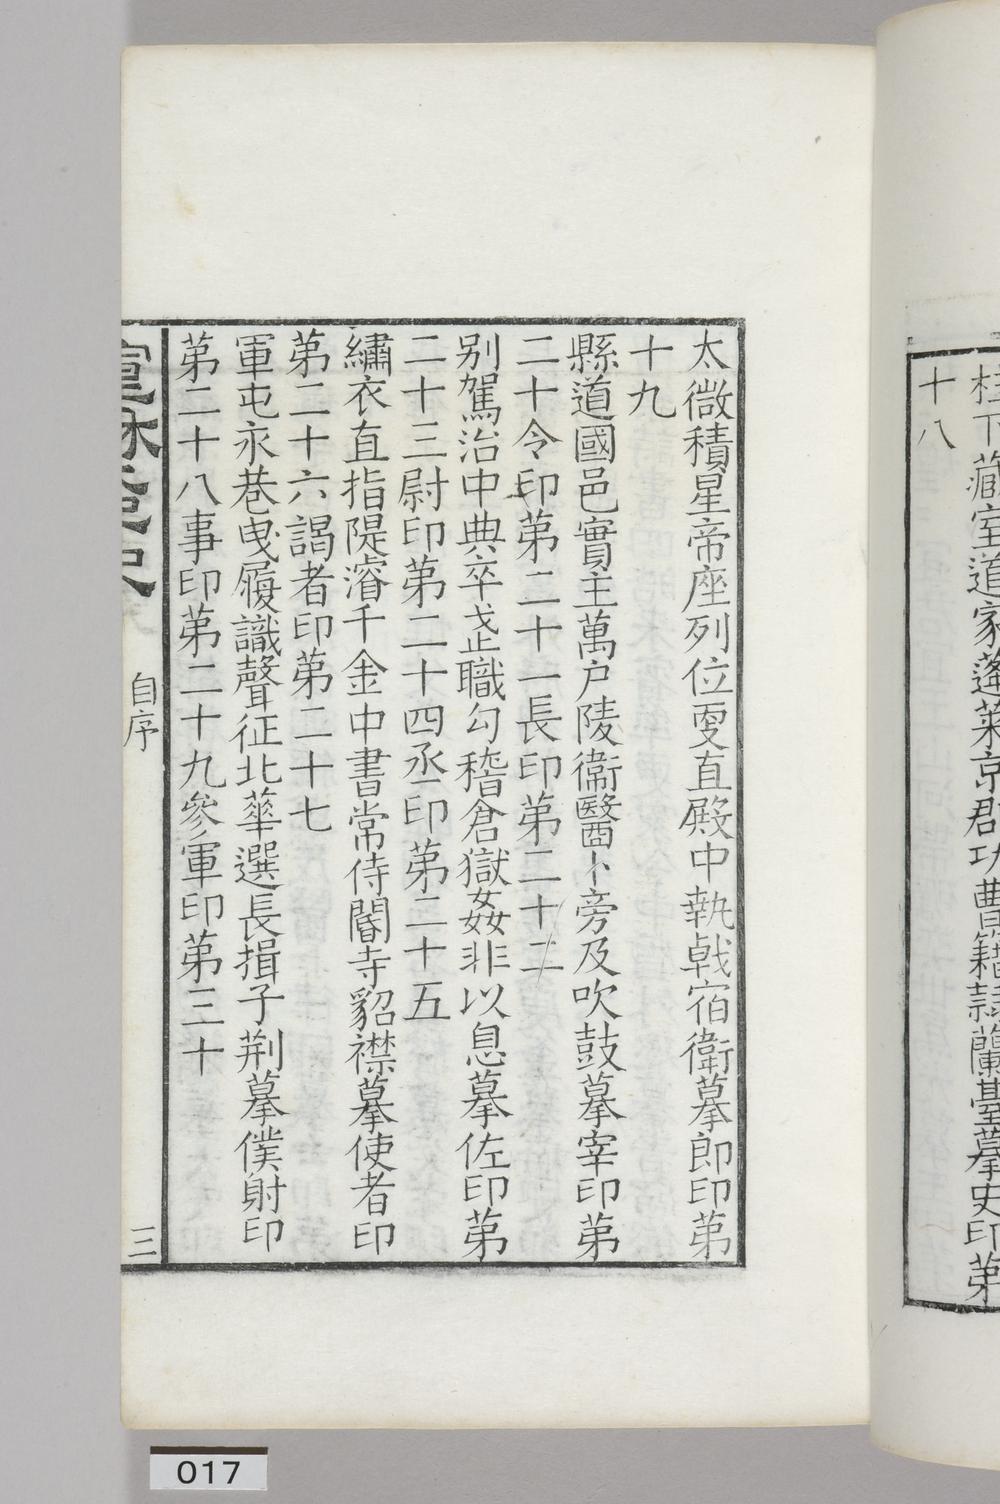 十八
太微積星帝座列位更直殿中執戟宿衛摹郎印第
十九
縣道國邑實主萬户陵衞醫卜旁及吹鼓摹宰印第
二十令印第二十一長印第二十二
别駕治中典卒戈止職勾稽倉獄姦非以息摹佐印第
二十三尉印第二十四丞印第二十五
繡衣直指隄濬千金中書常侍閽寺貂襟摹使者印
第二十六謁者印第二十七
軍屯永巷曳履識聲征北華選長揖子荆摹僕射印
第二十八事印第二十九參軍印第三十
自序
三
017